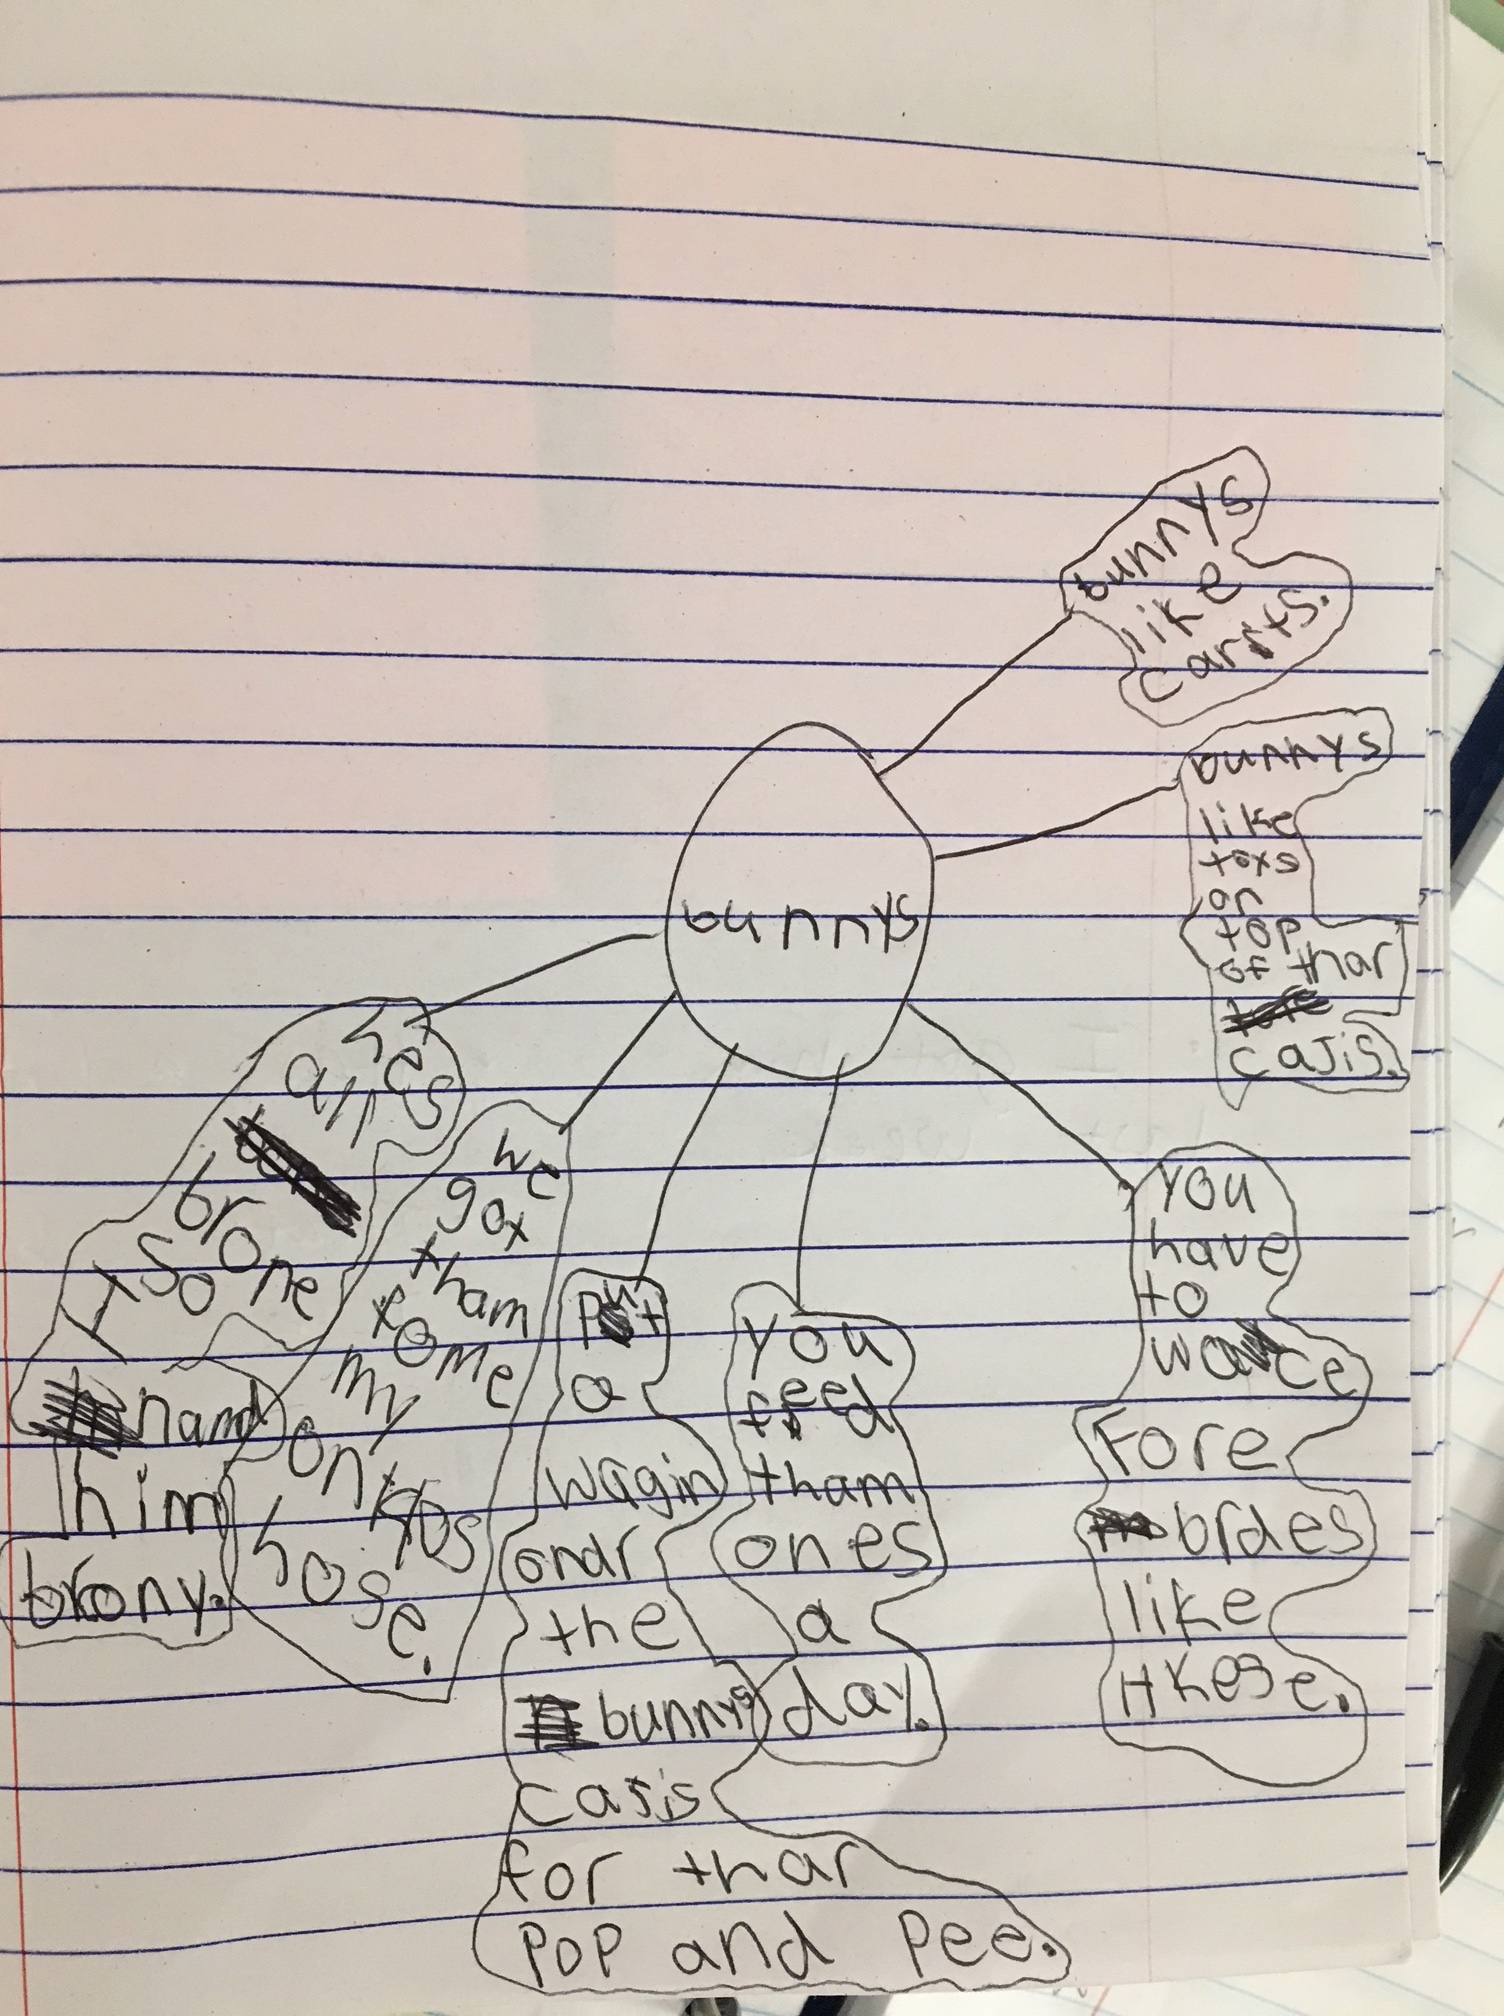 bunnys
like
carrts.
bunnys
like
toxs
on
top
of thar
cajis.
bunnys
you
have
to
wance
Fore
brdes
like
Hkese.
you
feed
tham
ones
a
day.
put
a
wagin
ondr
the
bunnys
casis
for thar
pop and pee.
we
gox
tham
xome
my
onkos
hose.
hes
alls
brone
I so
namd
him
brony.